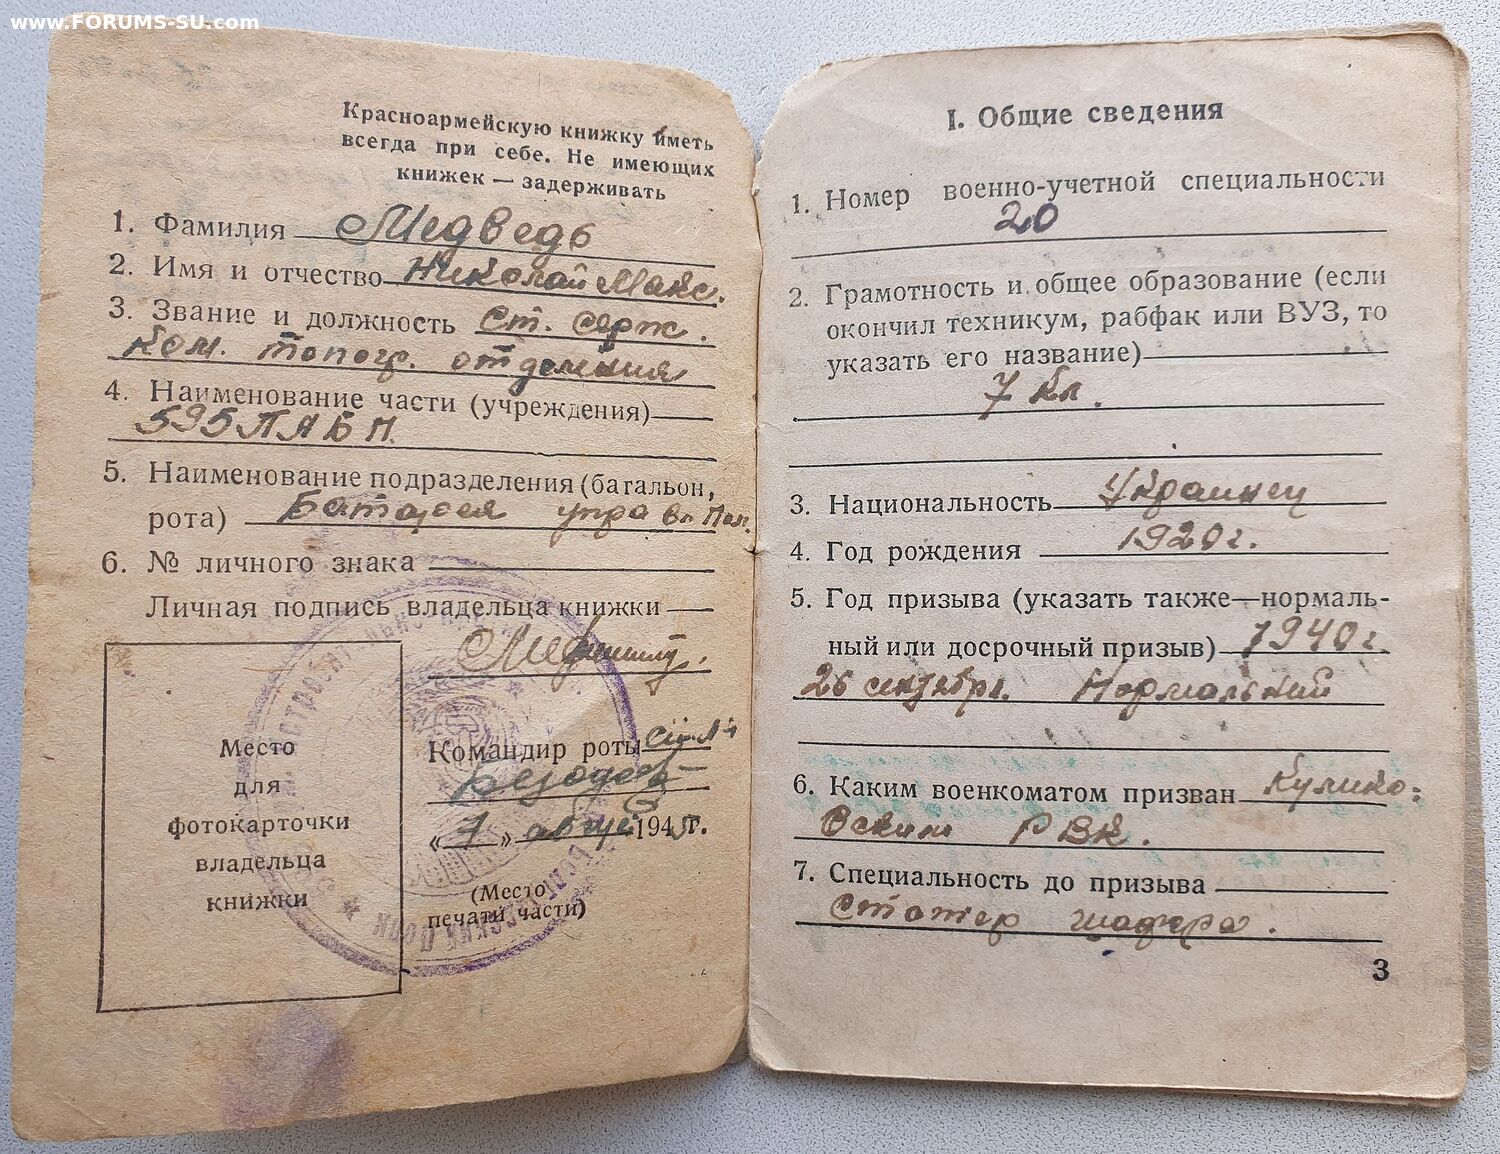 www.FORUMS-SU.com
Красноармейскую книжку иметь
всегда при себе. Не имеющих
книжек — задерживать
1. Фамилия Медведь
2. Имя и отчество Николай Макс.
3. Звание и должность Ст. серж.
Ком. топогр. отделения
4. Наименование части (учреждения)
595 ПАБП
5. Наименование подразделения (багальон,
рота) Батарея управл
6. № личного знака
Личная подпись владельца книжки
Место
для
фотокарточки
владельца
книжки
Командир роты
«7» август 1945 г.
(Место
печати части)
I. Общие сведения
1. Номер военно-учетной специальности
20
2. Грамотность и общее образование (если
окончил техникум, рабфак или ВУЗ, то
указать его название)
7 кл.
3. Национальность Украинец
4. Год рождения 1920 г.
5. Год призыва (указать также—нормаль-
ный или досрочный призыв) 1940 г.
26 октября. Нормальный
6. Каким военкоматом призван Кулико-
вским РВК.
7. Специальность до призыва
шофера.
3